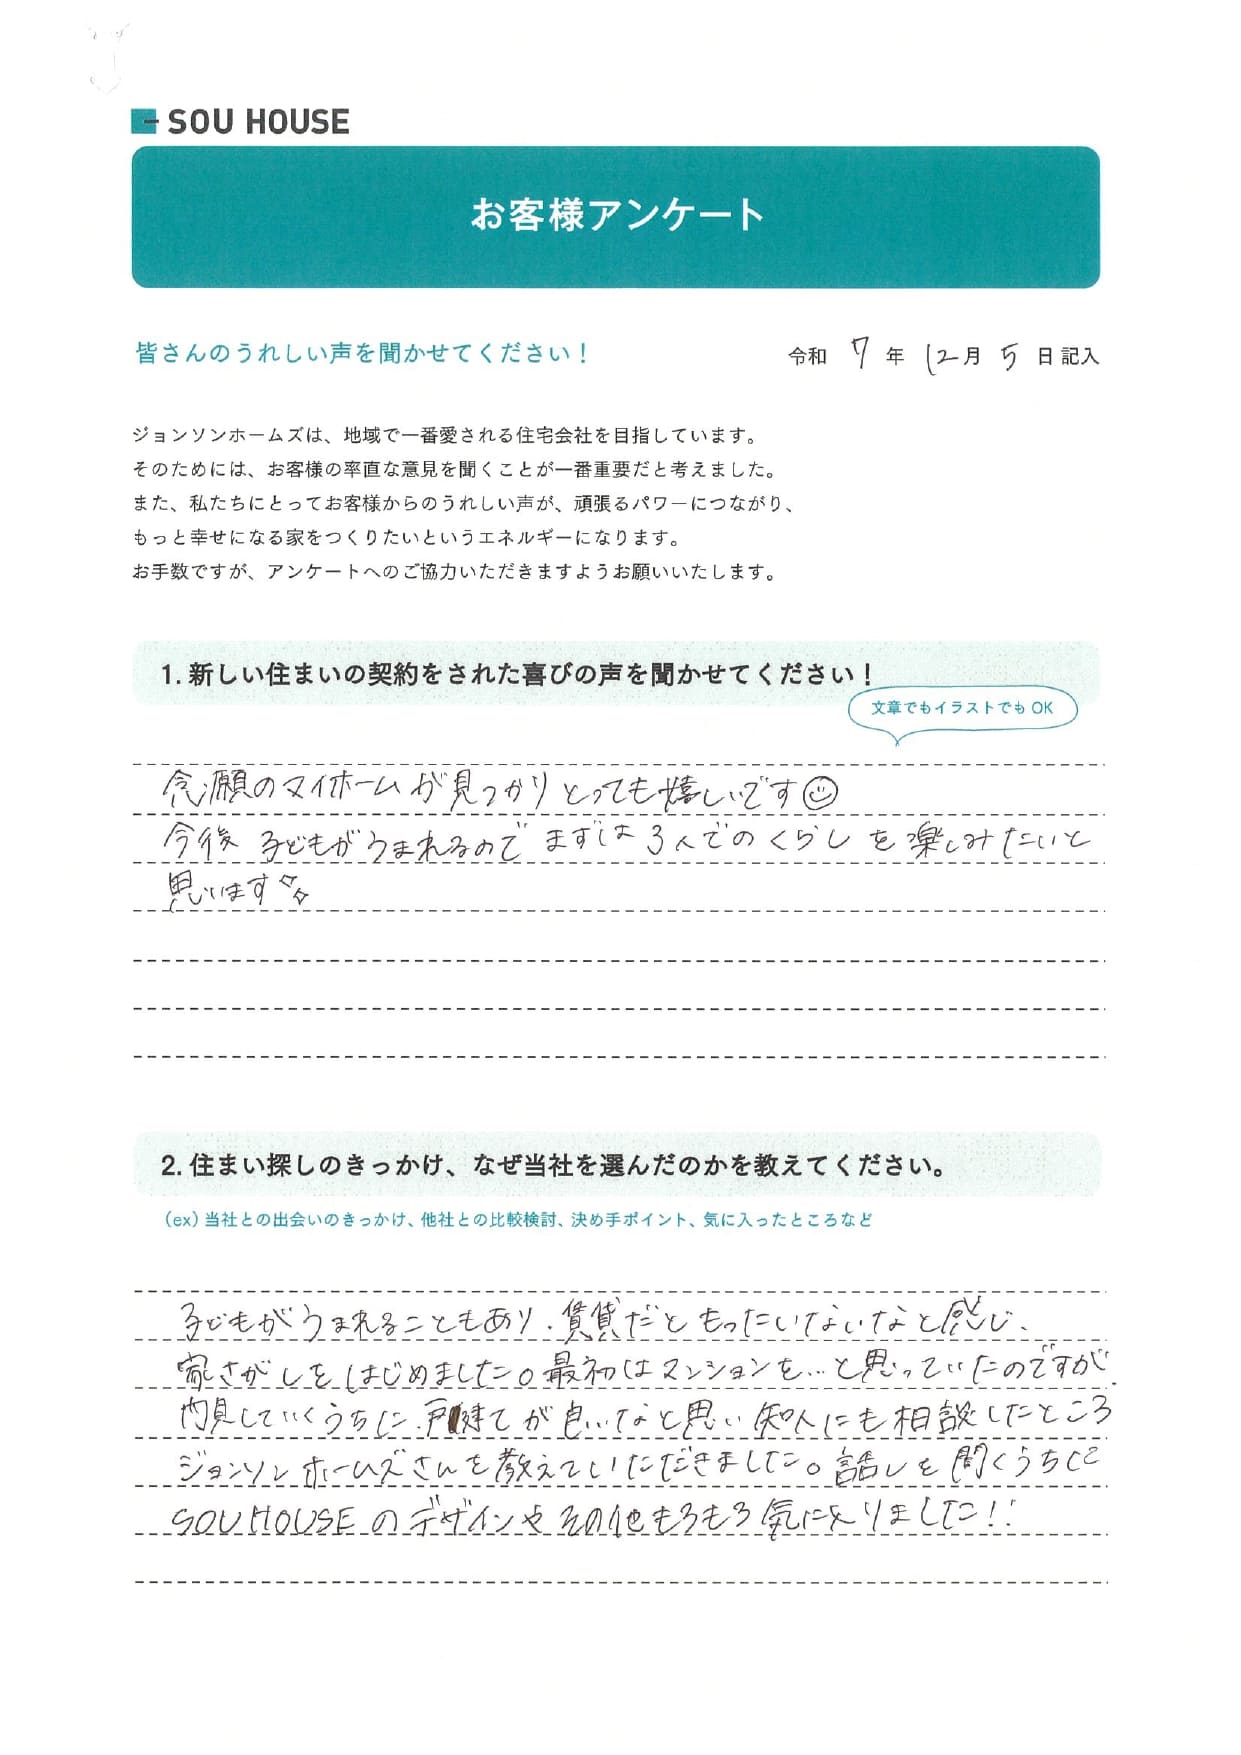 SOU HOUSE
お客様アンケート
皆さんのうれしい声を聞かせてください！
令和 7 年 12 月 5 日 記入
ジョンソンホームズは、地域で一番愛される住宅会社を目指しています。
そのためには、お客様の率直な意見を聞くことが一番重要だと考えました。
また、私たちにとってお客様からのうれしい声が、頑張るパワーにつながり、
もっと幸せになる家をつくりたいというエネルギーになります。
お手数ですが、アンケートへのご協力いただきますようお願いいたします。
1. 新しい住まいの契約をされた喜びの声を聞かせてください！
文章でもイラストでも OK
念願のマイホームが見つかりとっても嬉しいです☺
今後 子どもがうまれるので まずは 3人でのくらしを楽しみたいと
思います✨
2. 住まい探しのきっかけ、なぜ当社を選んだのかを教えてください。
（ex）当社との出会いのきっかけ、他社との比較検討、決め手ポイント、気に入ったところなど
子どもがうまれることもあり、賃貸だともったいないなと感じ、
家さがしをはじめました。最初はマンションを…と思っていたのですが、
内見していくうちに、戸建てが良いなと思い 知人にも相談したところ
ジョンソンホームズさんを教えていただきました。話しを聞くうちに
SOUHOUSEのデザインやその他もろもろ気に入りました!!